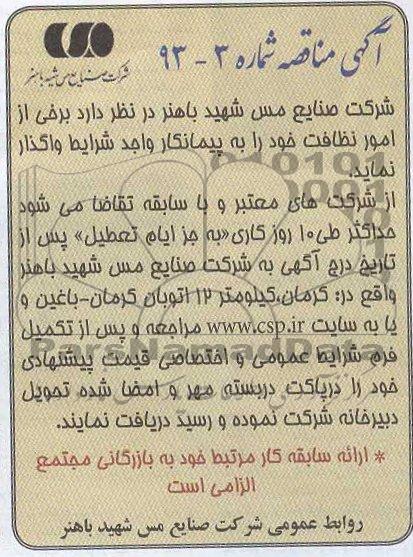 آگهی مناقصه شماره ۳ - ۹۳
شرکت صنایع مس شهید باهنر
شرکت صنایع مس شهید باهنر در نظر دارد برخی از
امور نظافت خود را به پیمانکار واجد شرایط واگذار
نماید.
از شرکت های معتبر و با سابقه تقاضا می شود
حداکثر طی۱۰ روز کاری«به جز ایام تعطیل» پس از
تاریخ درج آگهی به شرکت صنایع مس شهید باهنر
واقع در: کرمان،کیلومتر ۱۲ اتوبان کرمان-باغین و
یا به سایت www.csp.ir مراجعه و پس از تکمیل
فرم شرایط عمومی و اختصاصی قیمت پیشنهادی
خود را درپاکت دربسته مهر و امضا شده تحویل
دبیرخانه شرکت نموده و رسید دریافت نمایند.
* ارائه سابقه کار مرتبط خود به بازرگانی مجتمع
الزامی است
روابط عمومی شرکت صنایع مس شهید باهنر
ParsNamadData